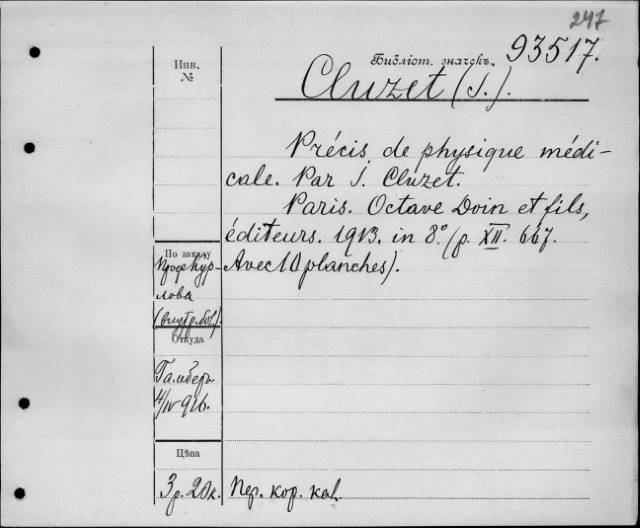 247
Библіот. значекъ. 93517.
Инв.
№
Cluzet (J.).
Précis de physique médi-
cale. Par J. Cluzet.
Paris. Octave Doin et fils,
éditeurs. 1913. in 8° (p. XII. 667.
Avec 10 planches).
По заказу
Проф. Кур-
лова
(внутр. бол)
Откуда
4/IV 916.
Цѣна
3 р. 20 к. Пер. кор. кал.